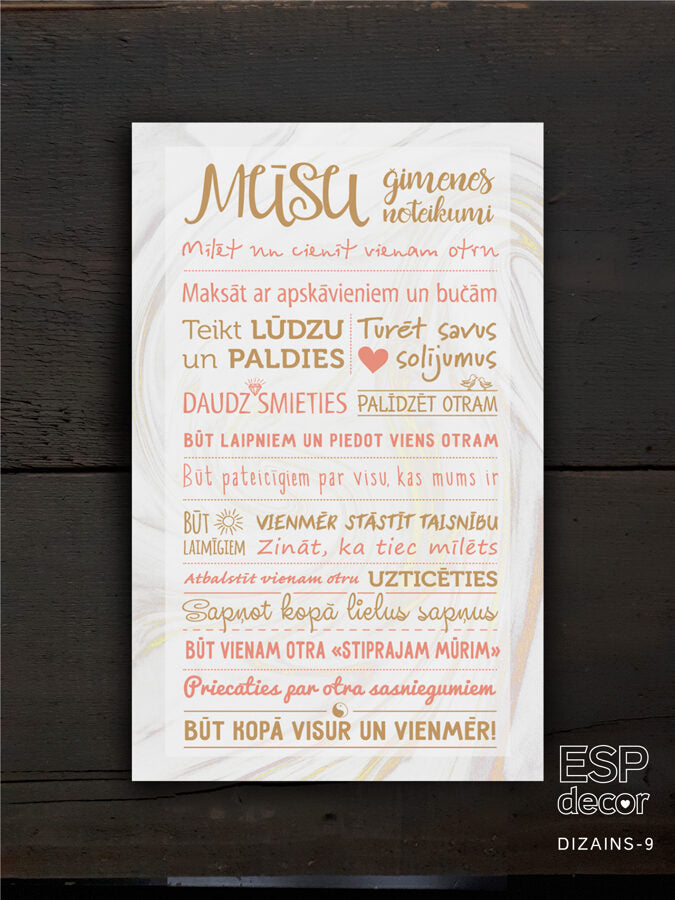 MŪSU ģimenes noteikumi
Mīlēt un cienīt vienam otru
Maksāt ar apskāvieniem un bučām
Teikt LŪDZU
un PALDIES
Turēt savus
solījumus
DAUDZ SMIETIES
PALĪDZĒT OTRAM
BŪT LAIPNIEM UN PIEDOT VIENS OTRAM
Būt pateicīgiem par visu, kas mums ir
BŪT
LAIMĪGIEM
VIENMĒR STĀSTĪT TAISNĪBU
Zināt, ka tiec mīlēts
Atbalstīt vienam otru
UZTICĒTIES
Sapņot kopā lielus sapņus
BŪT VIENAM OTRA «STIPRAJAM MŪRIM»
Priecāties par otra sasniegumiem
BŪT KOPĀ VISUR UN VIENMĒR!
ESP
decor
DIZAINS-9